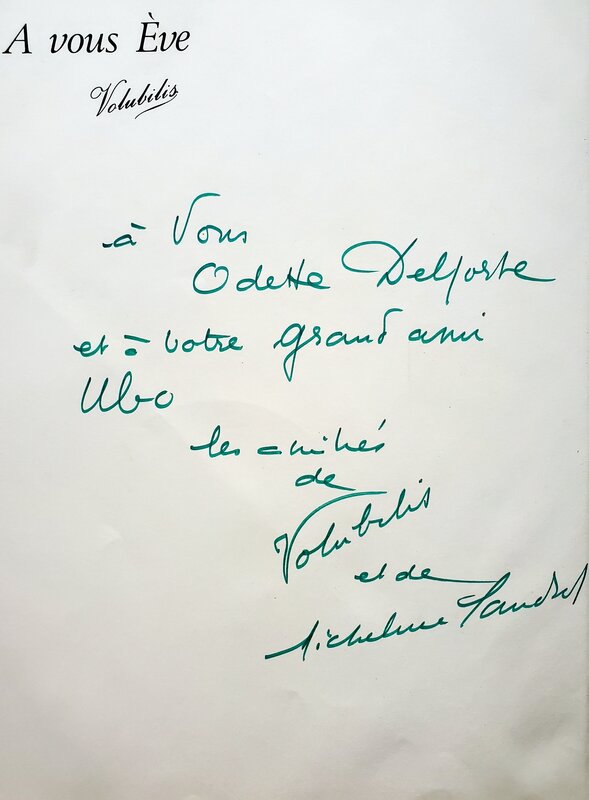 A vous Ève
Volubilis
à Vous
Odette Delporte
et à votre grand ami
Ubo
les amitiés
de
Volubilis
et de
Micheline Sandrel